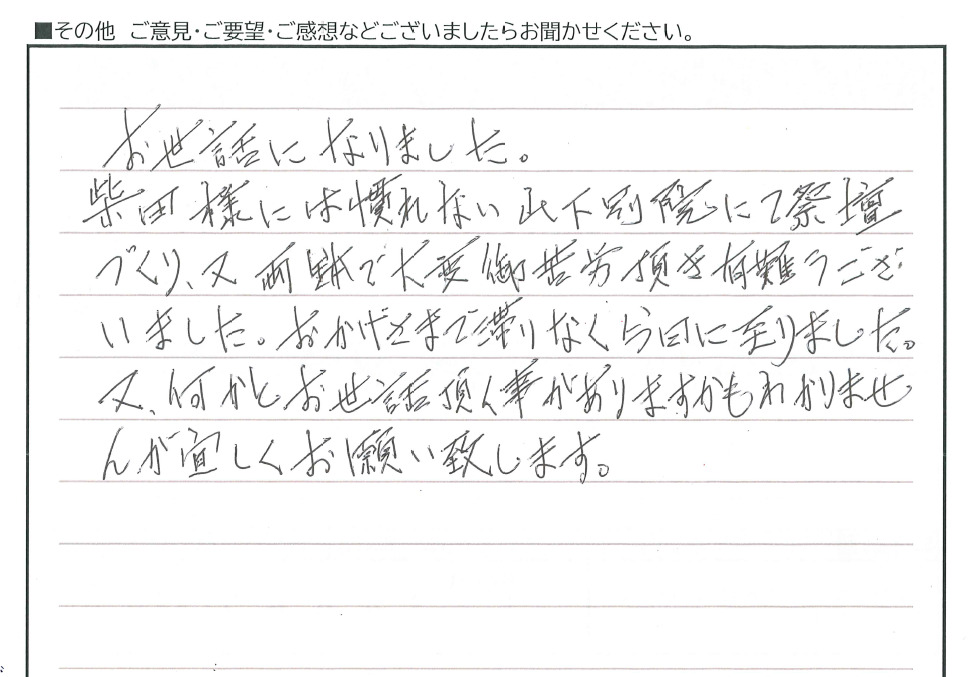 ■その他 ご意見・ご要望・ご感想などございましたらお聞かせください。
お世話になりました。
柴田様には慣れない山下別院にて祭壇
づくり、又両親で大変御苦労頂き有難うござ
いました。おかげさまで滞りなく今日に至りました。
又、何かとお世話頂く事がありますかもわかりませ
んが宜しくお願い致します。